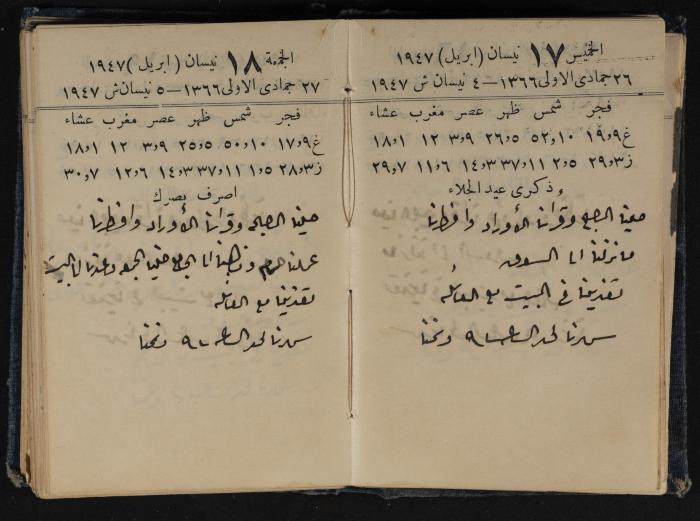 الخميس ١٧ نيسان (ابريل) ١٩٤٧
٢٦ جمادى الاولى ١٣٦٦ — ٤ نيسان ش ١٩٤٧
فجر شمس ظهر عصر مغرب عشاء
غ ١٩و٩ ٥٢و١٠ ٢٦و٥ ٣و٩ ١٢ ١٨و١
ز ٢٩و٣ ٢و٥ ٣٧و١١ ١٤و٣ ١١و٦ ٢٩و٧
ذكرى عيد الجلاء
صلينا الصبح وقرأنا الأوراد وافطرنا
ما نزلنا الى السوق
تغدينا في البيت مع العائله
سهرنا لحد الساعه ٩ ونمنا
الجمعة ١٨ نيسان (ابريل) ١٩٤٧
٢٧ جمادى الاولى ١٣٦٦ — ٥ نيسان ش ١٩٤٧
فجر شمس ظهر عصر مغرب عشاء
غ ١٧و٩ ٥٠و١٠ ٢٥و٥ ٣و٩ ١٢ ١٨و١
ز ٢٨و٣ ١و٥ ٣٧و١١ ١٤و٣ ١٢و٦ ٣٠و٧
اصرف بصرك
صلينا الصبح وقرأنا الأوراد وافطرنا
عملنا حمام وذهبنا الى الجامع صلينا الجمعه وعدنا للبيت
تغدينا مع العائله
سهرنا لحد الساعه ٩ ونمنا